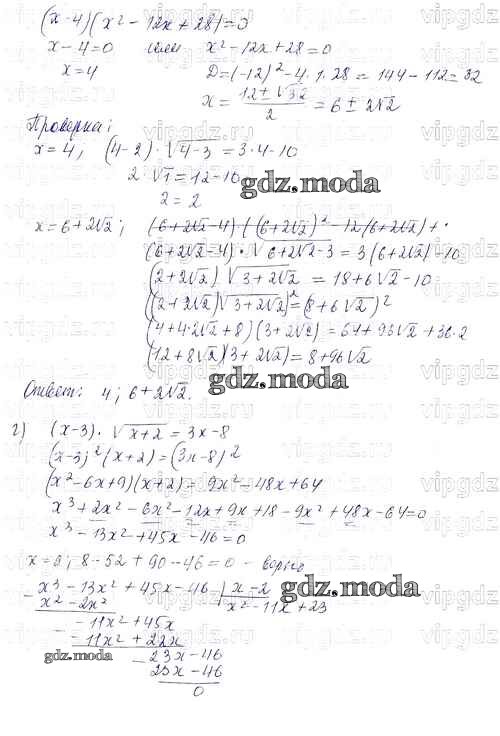 (x-4)(x²-12x+28)=0
x-4=0 или x²-12x+28=0
x=4 D=(-12)²-4·1·28=144-112=32
x=(12±√32)/2=6±2√2
Проверка:
x=4, (4-2)·√(4-3)=3·4-10
2·√1=12-10
2=2
x=6+2√2; (6+2√2-4)((6+2√2)²-12(6+2√2)+
(6+2√2-4)·√(6+2√2-3)=3(6+2√2)-10
(2+2√2)√(3+2√2)=18+6√2-10
((2+2√2)√(3+2√2))²=(8+6√2)²
(4+4·2√2+8)(3+2√2)=64+96√2+36·2
(12+8√2)(3+2√2)=8+96√2
Ответ: 4; 6+2√2.
2) (x-3)·√(x+2)=3x-8
(x-3)²(x+2)=(3x-8)²
(x²-6x+9)(x+2)=9x²-48x+64
x³+2x²-6x²-12x+9x+18-9x²+48x-64=0
x³-13x²+45x-46=0
x=2; 8-52+90-46=0 - верно
x³-13x²+45x-46 | x-2
x²-2x² x²-11x+23
-11x²+45x
-11x²+22x
23x-46
23x-46
0
gdz.moda
gdz.moda
gdz.moda
gdz.moda